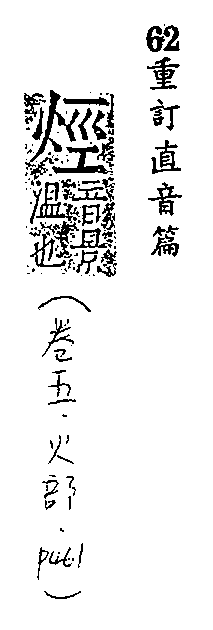 62重訂直音篇
烴
音景
溫也
(卷五·火部·p461)